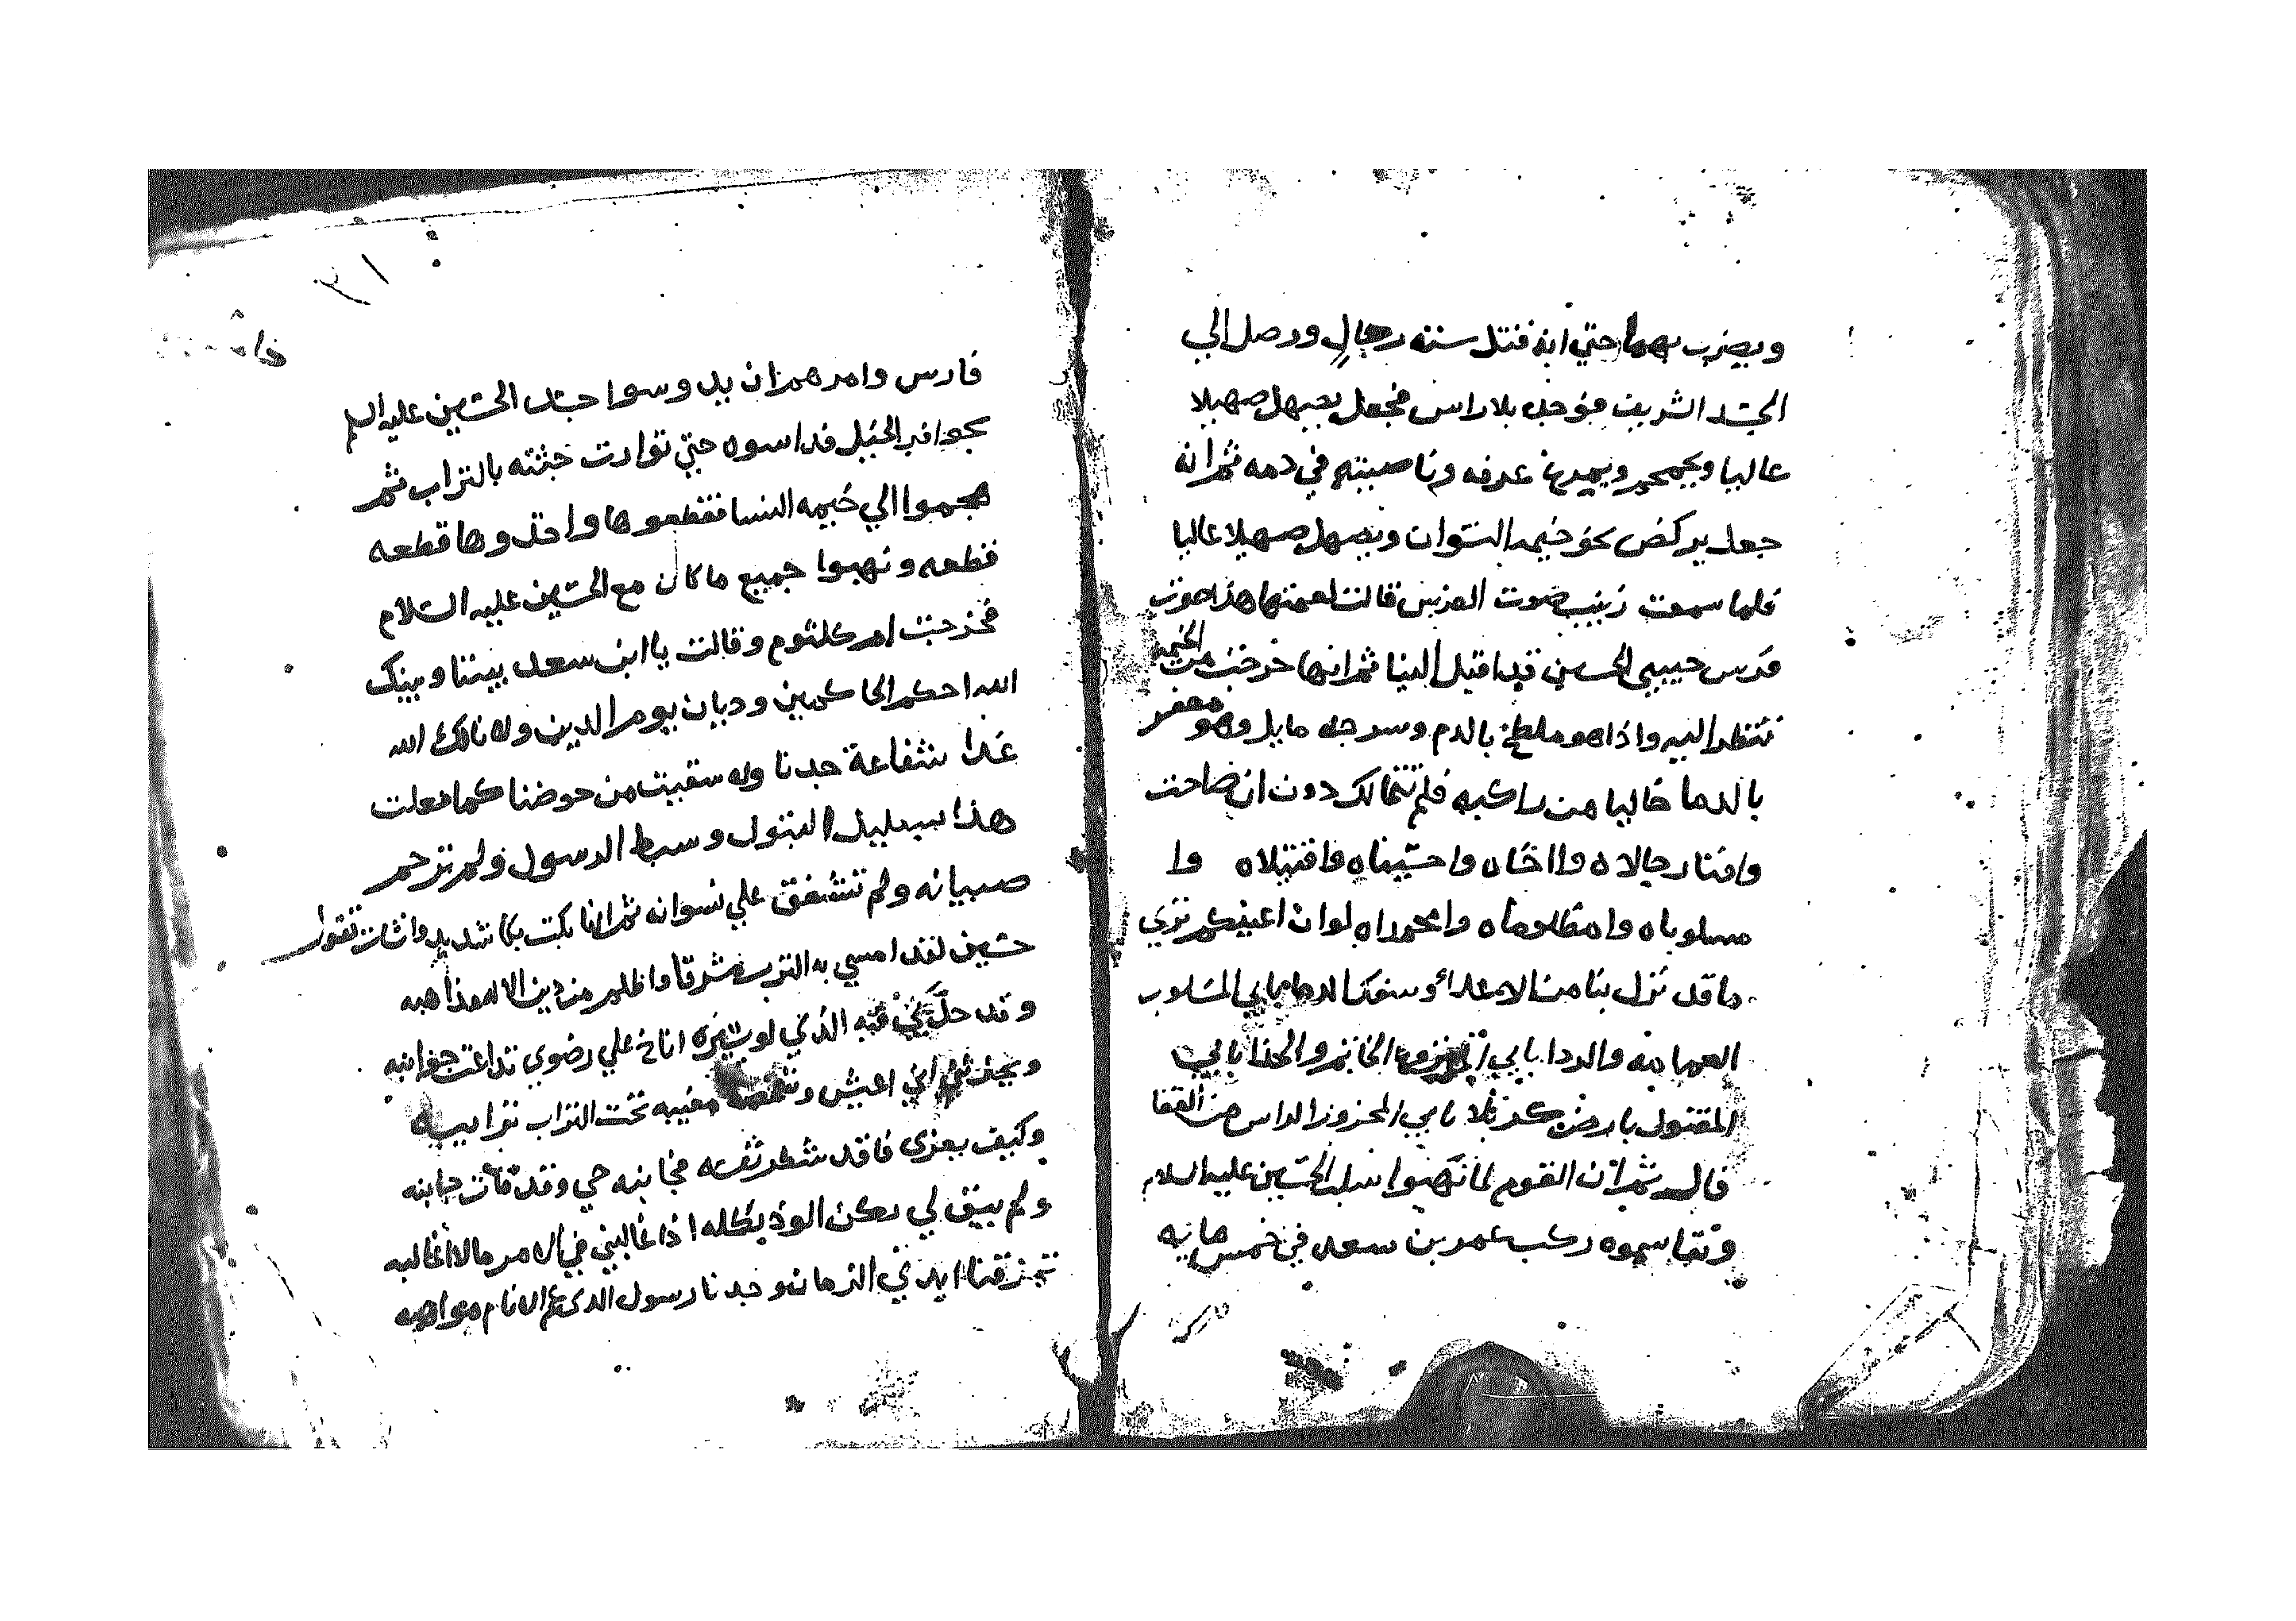 ويضرب بهما حتي انه فتل سته رجال ووصل الي
الجسد الشريف فوجده بلا راس فجعل يصهل صهيلا
عاليا ويحمحم ويمرغ عرفه وناصيته في دمه ثم انه
جعل يركض نحو خيمه النسوان ويصهل صهيلا عاليا
فلما سمعت زينب صوت الفرس قالت لعمتها هذا صوت
فرس حبيبي الحسين قد اقبل الينا ثم انها خرجت من الخيمه
تنظر اليه واذا هو ملطخ بالدم وسرجه مايل وهو معفر
بالدما خاليا من راكبه فلم تتمالك دون ان صاحت
وافنا رجالاه وا اخاه وا حسيناه وا قتيلاه وا
مسلوباه وا مظلوماه وا محمداه لوان اعينكم تري
ما قد نزل بنا من الاعداء وسفك الدما بابي المسلوب
العمامه والردا بابي الخاتم والحذا بابي
المقتول بارض كربلا بابي المحزوز الراس من القفا
قال ثم ان القوم لما نهبوا سلب الحسين عليه السلام
وتقاسموه ركب عمر بن سعد في خمس مايه
٣١
فارس وامرهم ان يدوسوا جسد الحسين عليه السلم
بحوافر الخيل فداسوه حتي توارت جثته بالتراب ثم
هجموا الي خيمه النسا فقطعوها واخذوها قطعه
قطعه ونهبوا جميع ما كان مع الحسين عليه السلام
فخرجت ام كلثوم وقالت يا ابن سعد بيننا وبينك
الله احكم الحاكمين وديان يوم الدين ولا نالك الله
غدا شفاعة جدنا ولا سقيت من حوضنا كما فعلت
هذا بسليل البتول وسبط الرسول ولم ترحم
صبيانه ولم تشفق علي نسوانه ثم انها بكت بكا شديد وانشات تقول
حسين لقد امسي به الترب مشرقا واظلم من دين الاله مذاهبه
وقد حل بي فيه الذي لو يسيره اناخ علي رضوي تداعت جوانبه
ويحزنني اني اعيش وشخصه مغيبه تحت التراب ترايبه
وكيف يعزي فاقد شطر نفسه فجانبه حي وقد مات جانبه
ولم يبق لي ركن الوذ بظله اذا غالبني في الامر مالا اغالبه
تمزقنا ايدي الزمان وجدنا رسول الذي عم الانام مواهبه